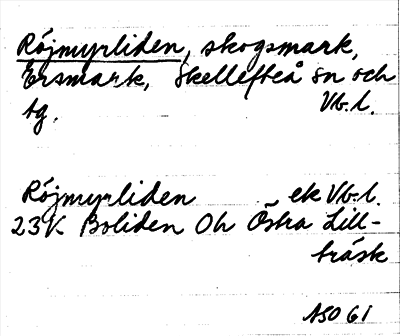 Röjmyrliden, skogsmark,
Ersmark, Skellefteå sn och
tg. Vb.l.
Röjmyrliden ek Vb.l.
23K Boliden Oh Östra Lill-
träsk
ASO 61